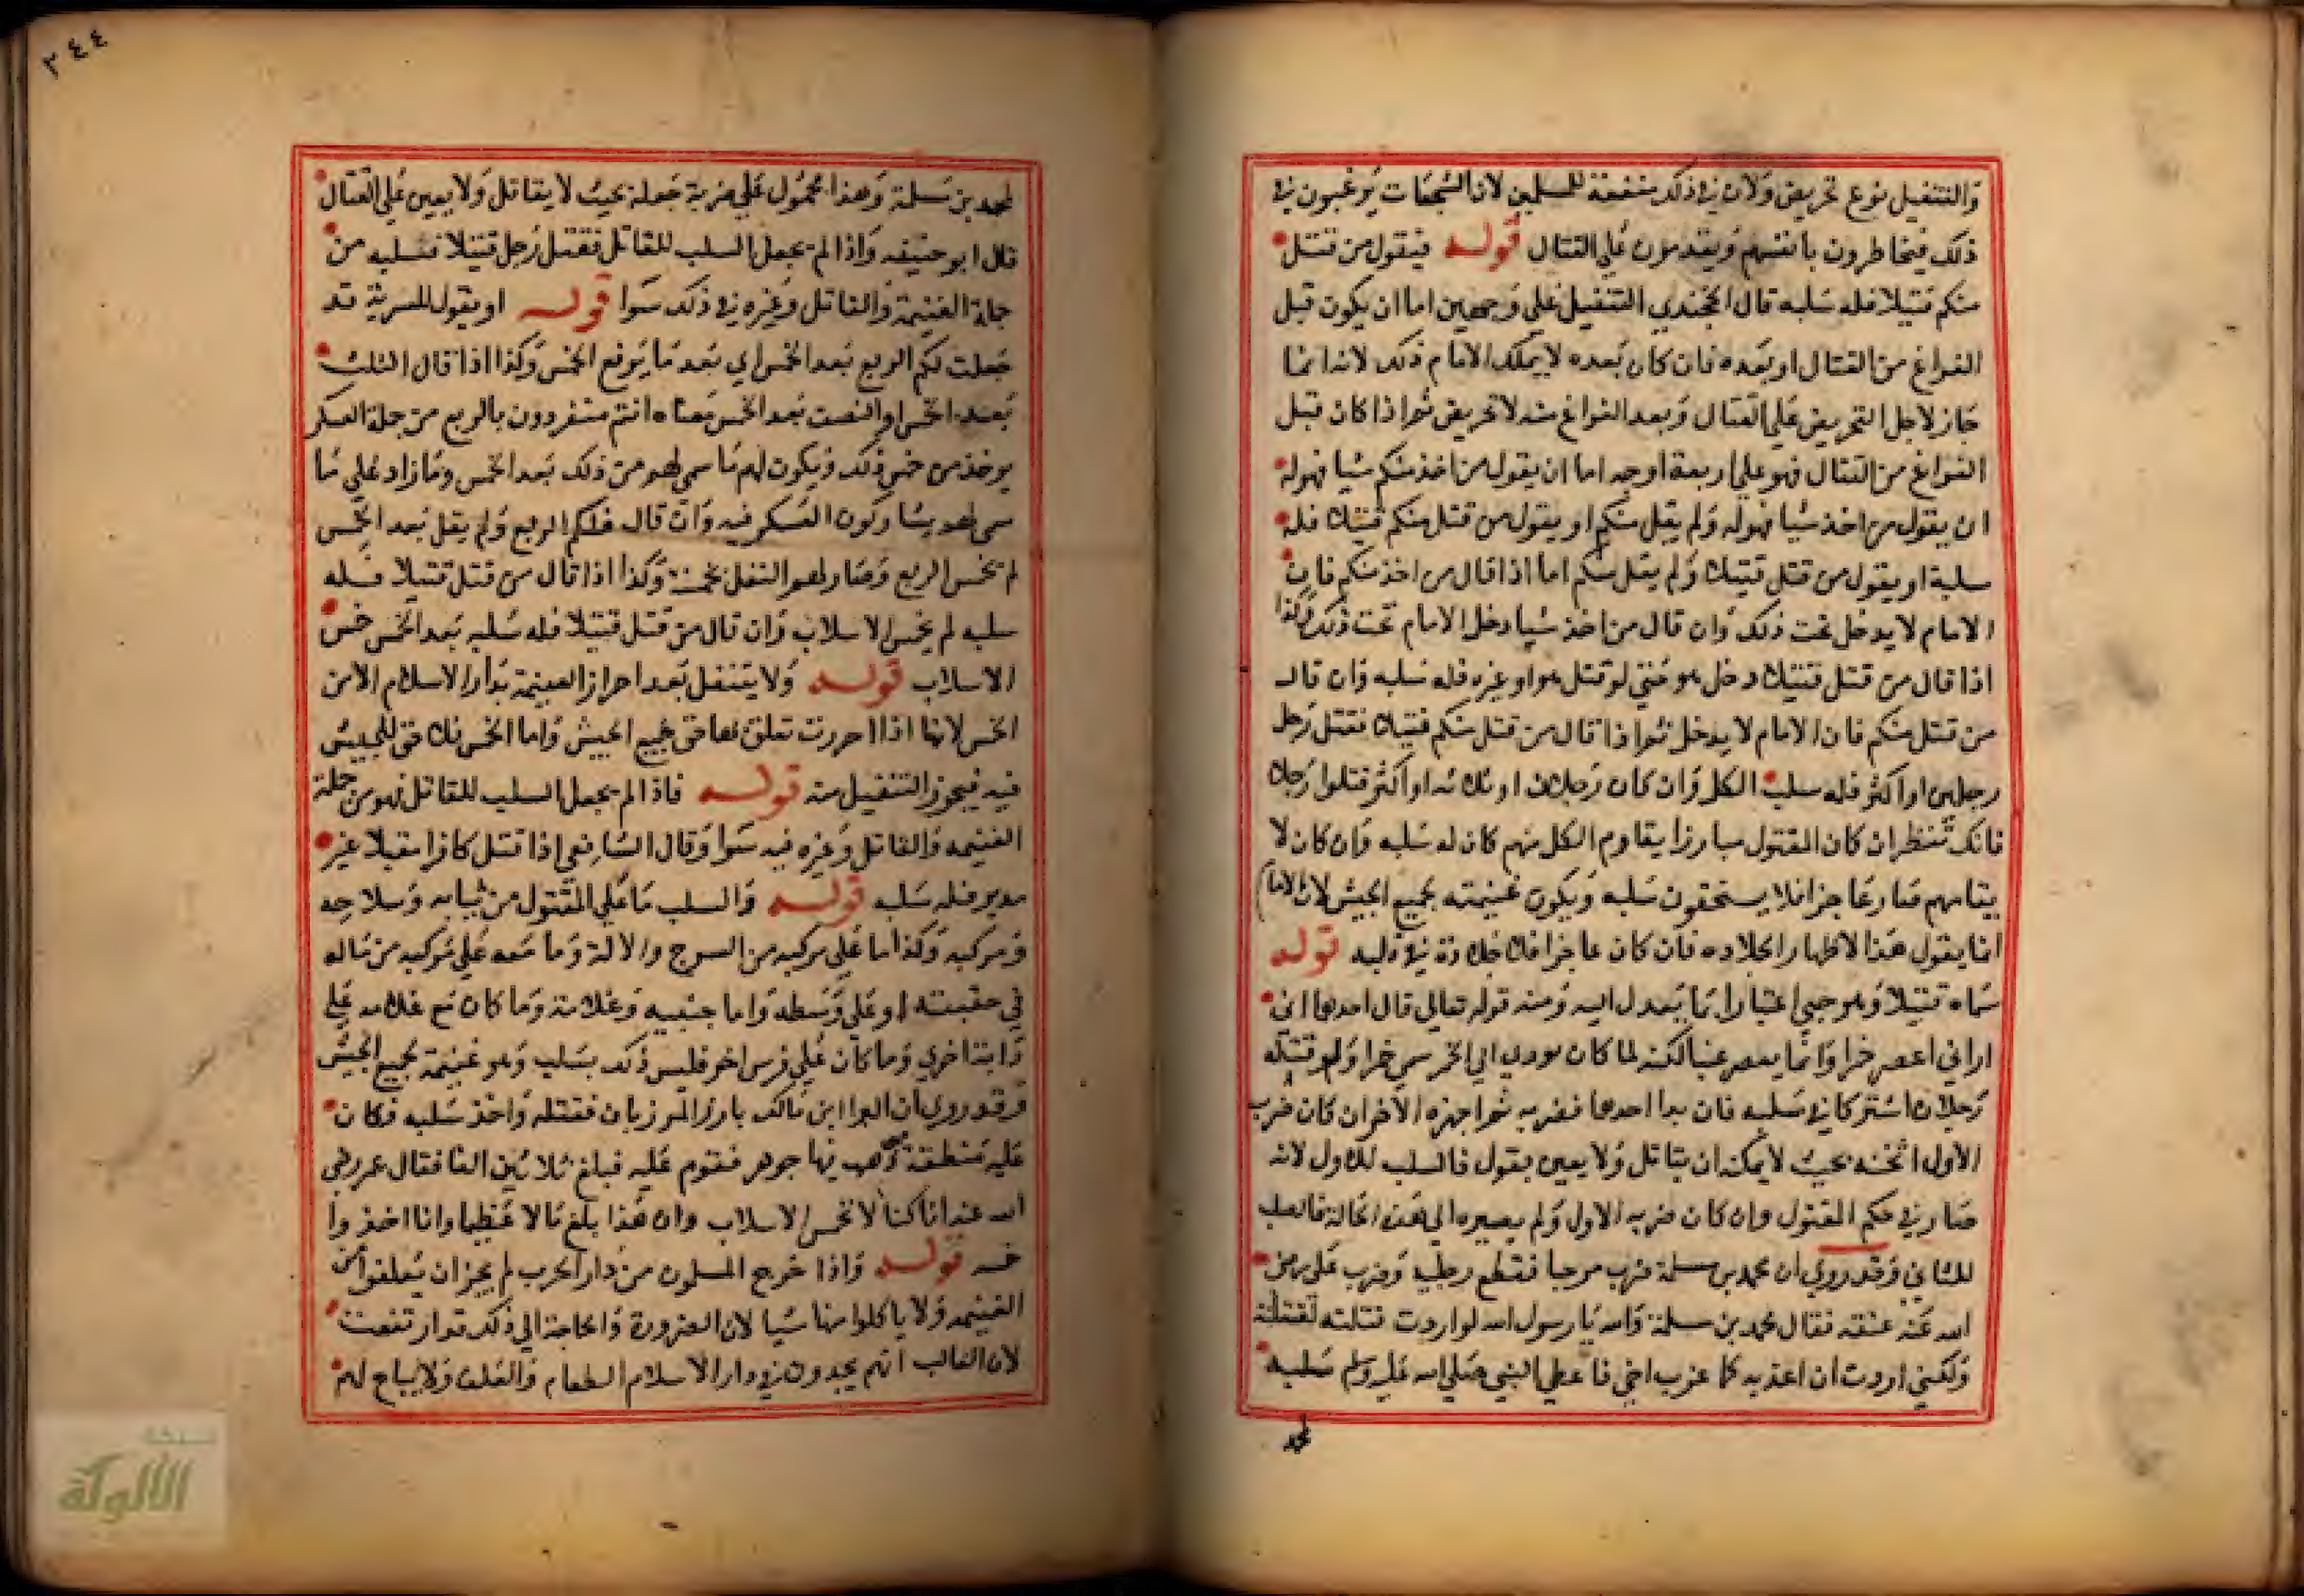 والتنفيل نوع تحريض ولان في ذلك منفعة للمسلمين لان الشجعات يرغبون في
ذلك فيخاطرون بانفسهم ويقدمون على القتال قوله فيقول من قتل
منكم قتيلا فله سلبه قال الخجندي التنفيل على وجهين اما ان يكون قبل
الفراغ من القتال او بعده فان كان بعده لا يملك الامام ذلك لانه انما
جاز لاجل التحريض على القتال وبعد الفراغ منه لا تحريض ثم اذا كان قبل
الفراغ من القتال فهو على اربعة اوجه اما ان يقول من اخذ منكم شيا فهوله
ان يقول من اخذ شيا فهوله ولم يقل منكم او يقول من قتل منكم قتيلا فله
سلبه او يقول من قتل قتيلا ولم يقل منكم اما اذا قال من اخذ منكم فان
الامام لا يدخل تحت ذلك وان قال من اخذ شيا دخل الامام تحت ذلك وكذا
اذا قال من قتل قتيلا دخل هو حتي لو قتل هو او غيره فله سلبه وان قال
من قتل منكم فان الامام لا يدخل ثم اذا قال من قتل منكم قتيلا فقتل رجل
رجلين او اكثر فله سلب الكل وان كان رجلان او ثلاثه او اكثر قتلوا رجلا
فانك تنظر ان كان المقتول مبارزا يقاوم الكل منهم كان له سلبه وان كان لا
يقامهم فصار عاجزا فلا يستحقون سلبه ويكون غنيمته لجميع الجيش لان الاما
انما يقول هذا لاظهار الجلاده فان كان عاجزا فلا جلادة في قوله
سماه قتيلا وهو حي اعتبارا بما يعدل اليه ومنه قوله تعالى قال احدهما اني
اراني اعصر خمرا وانما يعصر عنبا لكنه لما كان يودي الي الخمر سمي خمرا ولو قتله
رجلان اشتركا في سلبه فان بدا احدهما فضربه ثم اجهزه الاخر ان كان ضرب
الاول اثخنه بحيث لا يمكنه ان يقاتل ولا يعين بقول فالسلب للاول لانه
صار في حكم المقتول وان كان ضربه الاول ولم يصيره الي هذه الحالة فالسلب
للثاني وقد روي ان محمد بن مسلمة ضرب مرحبا فقطع رجليه وضرب علي رضي
الله عنه عنقه فقال محمد بن مسلمة والله يا رسول الله لو اردت قتلته لقتلته
ولكني اردت ان اعذبه كما عذب اخي فاعطي النبي صلى الله عليه وسلم سلبه
لمحمد
٢٤٤
لمحمد بن مسلمة وهذا محمول علي ضربة جعلته بحيث لا يقاتل ولا يعين علي القتال
قال ابو حنيفه واذا لم يجعل السلب للقاتل فقتل رجل قتيلا فسلبه من
جملة الغنيمة والقاتل وغيره في ذلك سوا قوله او يقول للسرية قد
جعلت لكم الربع بعد الخمس اي بعد ما يرفع الخمس وكذا اذا قال الثلث
بعد الخمس او النصف بعد الخمس معناه انتم متفردون بالربع من جملة العسكر
يوخذ من خمس ذلك ويكون لهم ما سمي لهم من ذلك بعد الخمس وما زاد على ما
سمي لهم يشاركون العسكر فيه وان قال فلكم الربع ولم يقل بعد الخمس
لم يخمس الربع وصار لهم النفل بخمسه وكذا اذا قال من قتل قتيلا فله
سلبه لم يخمس الاسلاب وان قال من قتل قتيلا فله سلبه بعد الخمس خمس
الاسلاب قوله ولا يتنفل بعد احراز الغنيمة بدار الاسلام الا من
الخمس لانها اذا احرزت تعلق بها حق جميع الجيش واما الخمس فلا حق للجيش
فيه فيجوز التنفيل منه قوله فاذا لم يجعل السلب للقاتل فهو من جملة
الغنيمه والقاتل وغيره فيه سوا وقال الشافعي اذا قتل كافرا مقبلا غير
مدبر فله سلبه قوله والسلب ما علي المقتول من ثيابه وسلاحه
ومركبه وكذا ما علي مركبه من السرج والالة وما معه علي مركبه من ماله
في حقيبته او علي وسطه واما جنيبه وغلامه وما كان مع غلامه علي
دابة اخري وما كان علي فرس اخر فليس ذلك بسلب وهو غنيمة لجميع الجيش
وقد روي ان البرا ابن مالك بارز المرزبان فقتله واخذ سلبه فكان
عليه منطقة ذهب فيها جوهر فقوم عليه فبلغ ثلاثين الفا فقال عمر رضي
الله عنه انا كنا لا نخمس الاسلاب وان هذا بلغ مالا عظيما وانا اخذوا
خمسه قوله واذا خرج المسلمون من دار الحرب لم يجز ان يعلفوا من
الغنيمه ولا ياكلوا منها شيا لان الضرورة والحاجة الي ذلك قد ارتفعت
لان الغالب انهم يجدون في دار الاسلام الطعام والعلف ولا يباح لهم
شبكة
الألوكة